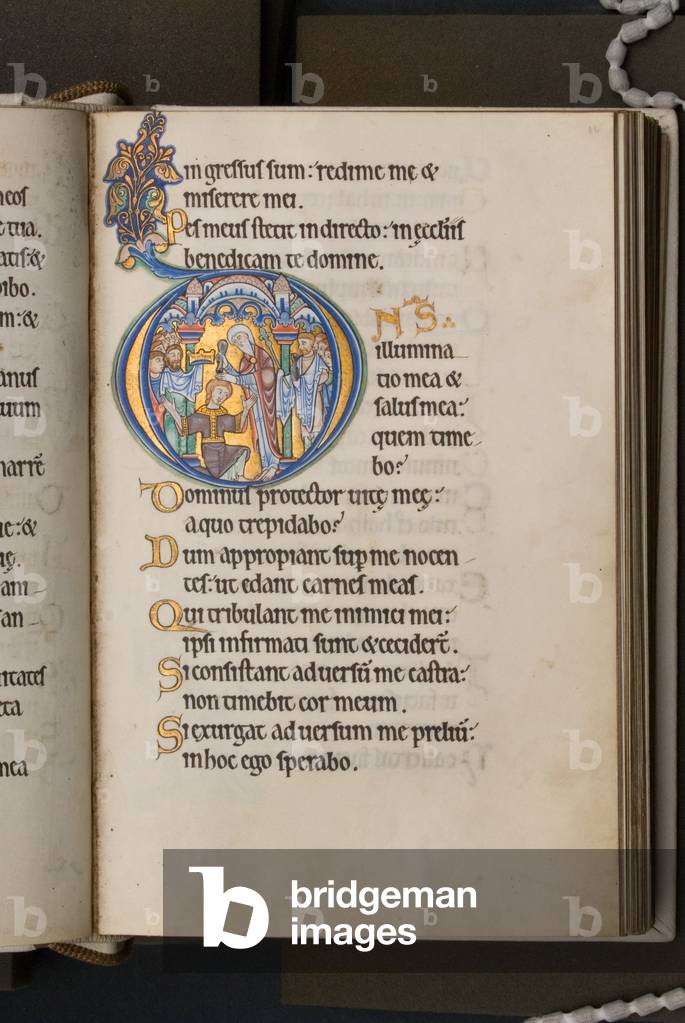 in gressus sum: redime me &
miserere mei.
Pes meus stetit in directo: in ęccl̄iis
benedicam te domine.
D
N̄S
illumina
tio mea &
salus mea:
quem time
bo?
Dominus protector uitę męę:
a quo trepidabo?
Dum appropiant sup me nocen
tes: ut edant carnes meas.
Qui tribulant me inimici mei:
ipsi infirmati sunt & cecider̄t.
Si consistant aduersū me castra:
non timebit cor meum.
Si exurgat aduersum me preliū:
in hoc ego sperabo.
neos
tua.
atis &
ibo.
m: &
anus
uum
narrē
&
am
san
itates
mea
b bridgeman
images